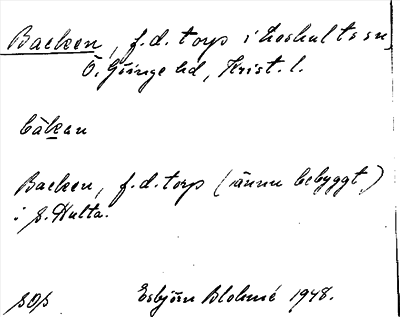 Backen, f.d. torp i Loshults sn,
Ö. Göinge hd, Krist. l.
bákan
Backen, f.d. torp (ännu bebyggt)
i S. Hulta.
sos
Esbjörn Blohmé 1948.